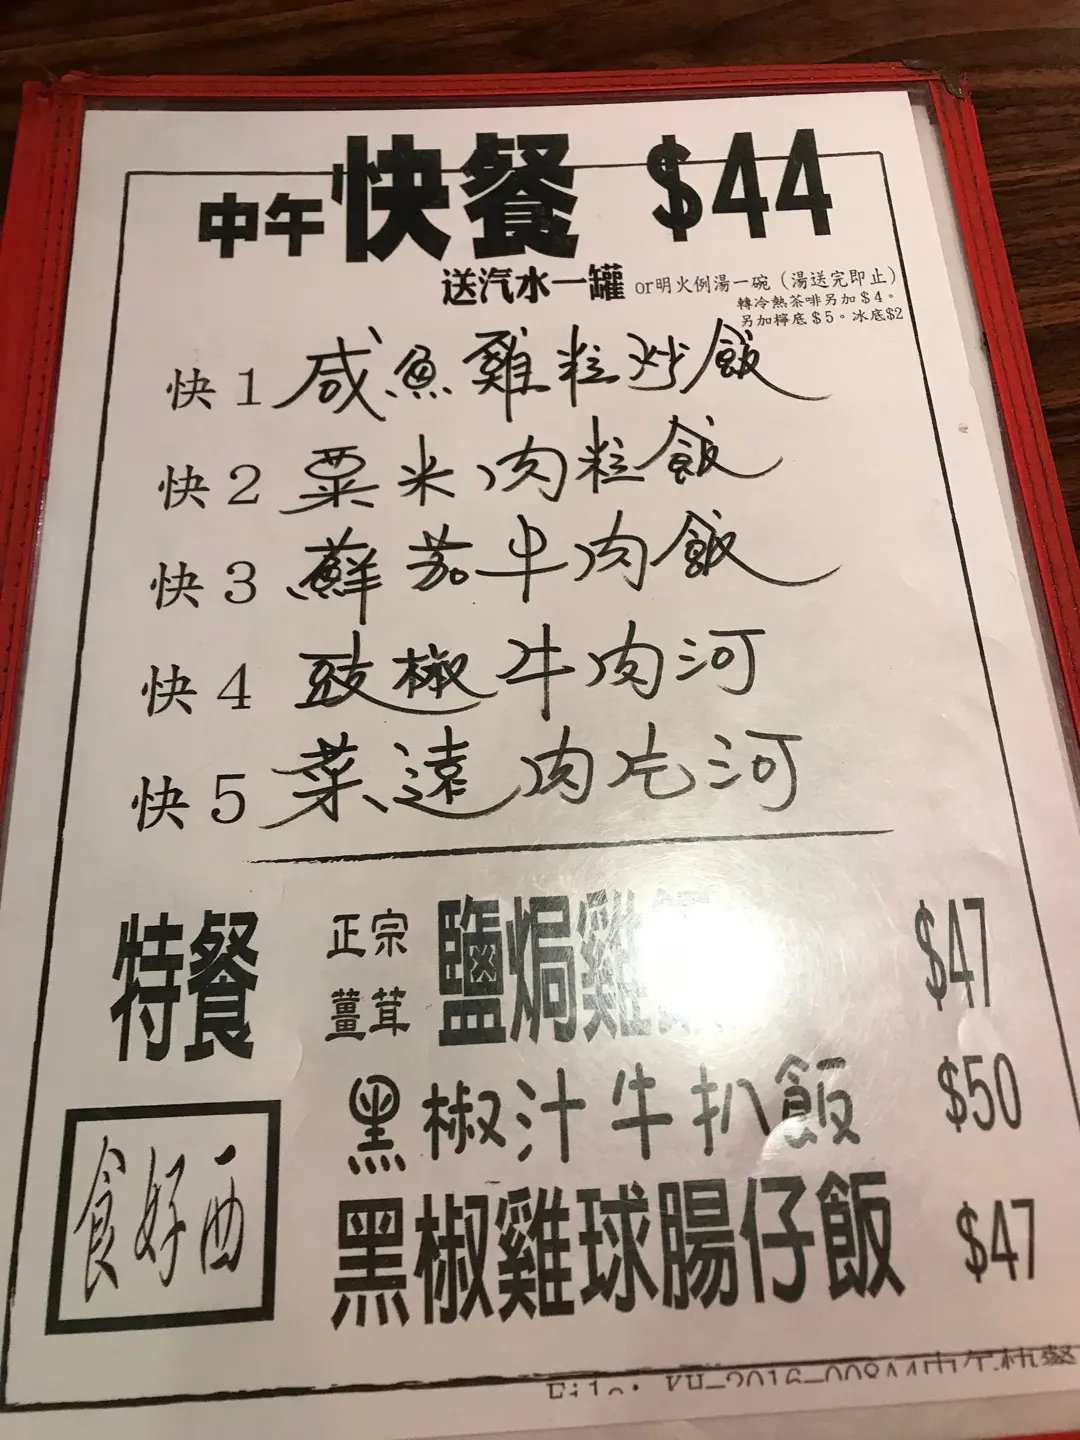 中午快餐 $44
送汽水一罐 or明火例湯一碗（湯送完即止）
轉冷熱茶啡另加＄4。
另加檸底＄5。冰底$2
快1 咸魚雞粒炒飯
快2 粟米肉粒飯
快3 鮮茄牛肉飯
快4 豉椒牛肉河
快5 菜遠肉片河
特餐 正宗薑茸 鹽焗雞 $47
黑椒汁牛扒飯 $50
黑椒雞球腸仔飯 $47
食好西